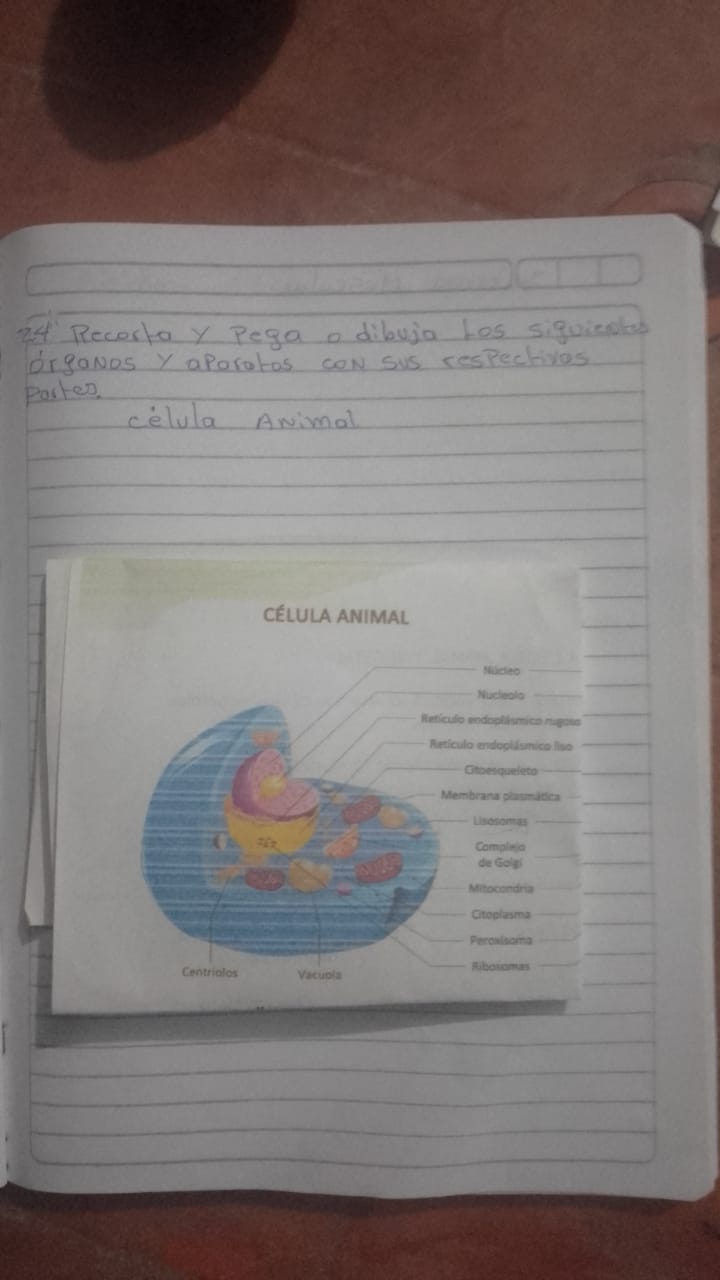 24 Recorta y Pega o dibuja Los siguientes
órganos y aparatos con sus respectivas
Partes.
célula Animal
CÉLULA ANIMAL
Núcleo
Nucleolo
Retículo endoplásmico rugoso
Retículo endoplásmico liso
Citoesqueleto
Membrana plasmática
Lisosomas
Complejo
de Golgi
Mitocondria
Citoplasma
Peroxisoma
Ribosomas
Centriolos
Vacuola